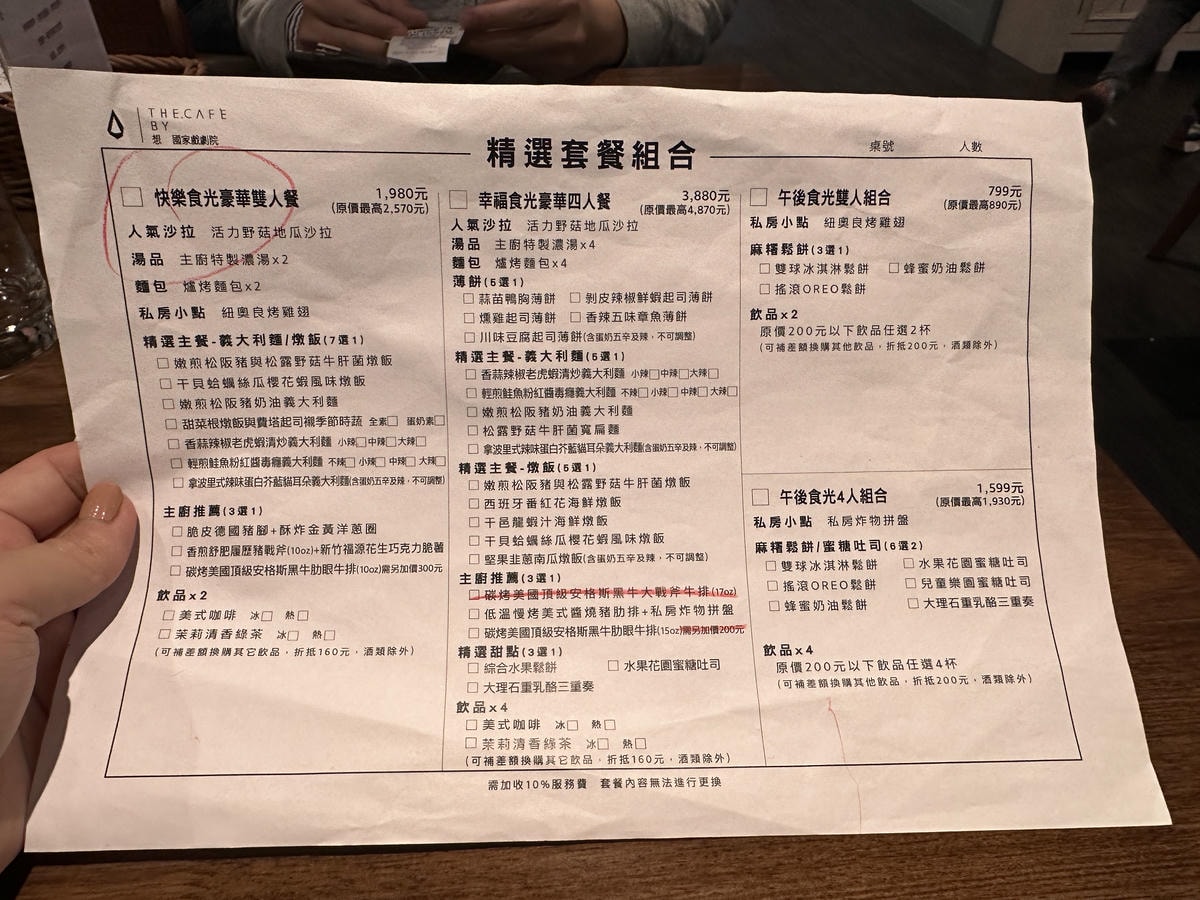 THE.CAFE
BY
想 國家戲劇院
精選套餐組合
桌號 人數
快樂食光豪華雙人餐 1,980元
(原價最高2,570元)
人氣沙拉 活力野菇地瓜沙拉
湯品 主廚特製濃湯x2
麵包 爐烤麵包x2
私房小點 紐奧良烤雞翅
精選主餐-義大利麵/燉飯(7選1)
嫩煎松阪豬與松露野菇牛肝菌燉飯
干貝蛤蠣絲瓜櫻花蝦風味燉飯
嫩煎松阪豬奶油義大利麵
甜菜根燉飯與費塔起司襯季節時蔬 全素 蛋奶素
香蒜辣椒老虎蝦清炒義大利麵 小辣 中辣 大辣
輕煎鮭魚粉紅醬毒癮義大利麵 不辣 小辣 中辣 大辣
拿波里式辣味蛋白芥藍貓耳朵義大利麵(含蛋奶五辛及辣，不可調整)
主廚推薦(3選1)
脆皮德國豬腳+酥炸金黃洋蔥圈
香煎舒肥履歷豬戰斧(10oz)+新竹福源花生巧克力脆薯
碳烤美國頂級安格斯黑牛肋眼牛排(10oz)需另加價300元
飲品x2
美式咖啡 冰 熱
茉莉清香綠茶 冰 熱
(可補差額換購其它飲品，折抵160元，酒類除外)
幸福食光豪華四人餐 3,880元
(原價最高4,870元)
人氣沙拉 活力野菇地瓜沙拉
湯品 主廚特製濃湯x4
麵包 爐烤麵包x4
薄餅(5選1)
蒜苗鴨胸薄餅 剝皮辣椒鮮蝦起司薄餅
燻雞起司薄餅 香辣五味章魚薄餅
川味豆腐起司薄餅(含蛋奶五辛及辣，不可調整)
精選主餐-義大利麵(5選1)
香蒜辣椒老虎蝦清炒義大利麵 小辣 中辣 大辣
輕煎鮭魚粉紅醬毒癮義大利麵 不辣 小辣 中辣 大辣
嫩煎松阪豬奶油義大利麵
松露野菇牛肝菌寬扁麵
拿波里式辣味蛋白芥藍貓耳朵義大利麵(含蛋奶五辛及辣，不可調整)
精選主餐-燉飯(5選1)
嫩煎松阪豬與松露野菇牛肝菌燉飯
西班牙番紅花海鮮燉飯
干邑龍蝦汁海鮮燉飯
干貝蛤蠣絲瓜櫻花蝦風味燉飯
堅果韭蔥南瓜燉飯(含蛋奶五辛及辣，不可調整)
主廚推薦(3選1)
碳烤美國頂級安格斯黑牛大戰斧牛排(17oz)
低溫慢烤美式醬燒豬肋排+私房炸物拼盤
碳烤美國頂級安格斯黑牛肋眼牛排(15oz)需另加價200元
精選甜點(3選1)
綜合水果鬆餅 水果花園蜜糖吐司
大理石重乳酪三重奏
飲品x4
美式咖啡 冰 熱
茉莉清香綠茶 冰 熱
(可補差額換購其它飲品，折抵160元，酒類除外)
午後食光雙人組合 799元
(原價最高890元)
私房小點 紐奧良烤雞翅
麻糬鬆餅(3選1)
雙球冰淇淋鬆餅 蜂蜜奶油鬆餅
搖滾OREO鬆餅
飲品x2
原價200元以下飲品任選2杯
(可補差額換購其他飲品，折抵200元，酒類除外)
午後食光4人組合 1,599元
(原價最高1,930元)
私房小點 私房炸物拼盤
麻糬鬆餅/蜜糖吐司(6選2)
雙球冰淇淋鬆餅 水果花園蜜糖吐司
搖滾OREO鬆餅 兒童樂園蜜糖吐司
蜂蜜奶油鬆餅 大理石重乳酪三重奏
飲品x4
原價200元以下飲品任選4杯
(可補差額換購其他飲品，折抵200元，酒類除外)
需加收10%服務費 套餐內容無法進行更換